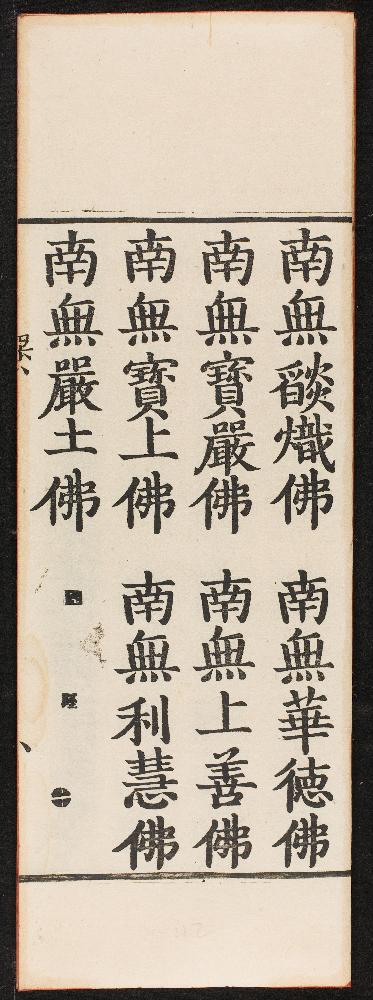 南無燄熾佛 南無華德佛
南無寶嚴佛 南無上善佛
南無寶上佛 南無利慧佛
南無嚴土佛